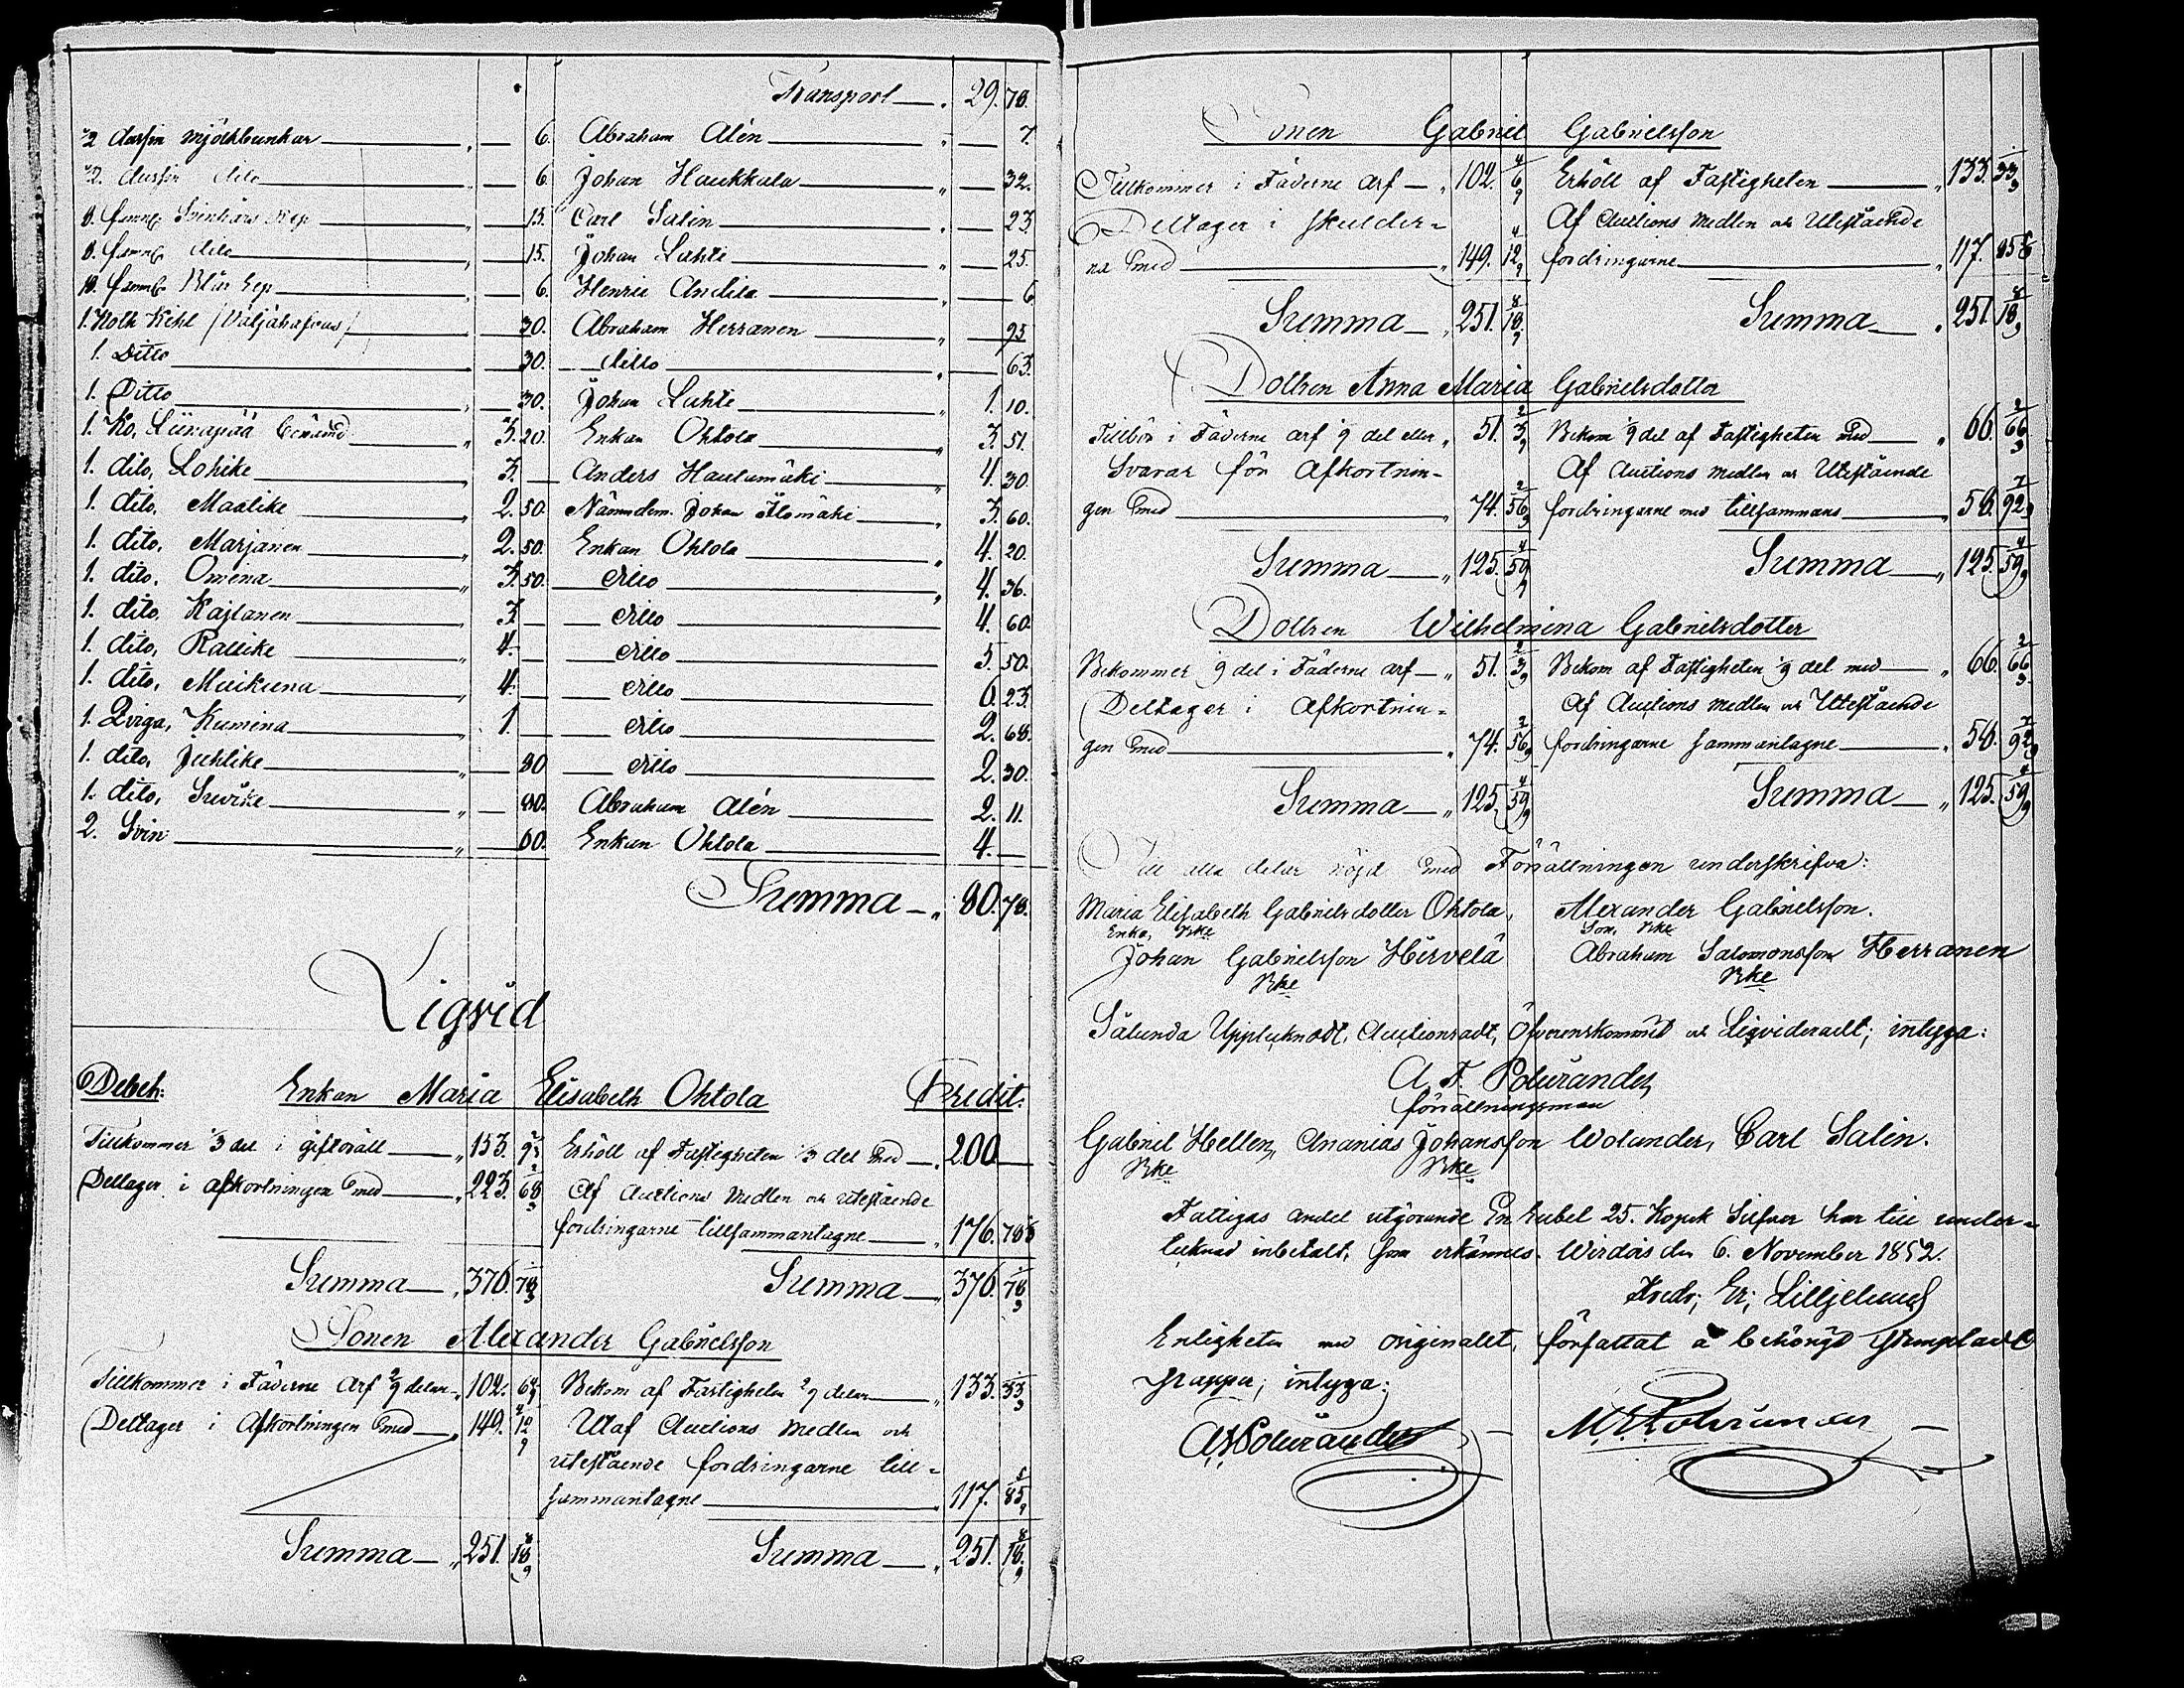 Transport — 29. 78.
1/2 dussin mjölkbunkar — 6. Abraham Alén — 7.
1/2 dussin dito — 6. Johan Haukkala — 32.
8. famnar Svinhårs Rep — 15. Carl Salin — 23.
8. famnar dito — 15. Johan Lahti — 25.
10. famnar Blår Rep — 6. Henric Andila — 6
1. Hölk Kihl / — 30. Abraham Herranen — 95
1. Ditto — 30. ditto — 63.
1. Ditto — 30. Johan Lahti — 1. 10.
1. Ko, Liinapää benämd — 3. 20. Enkan Ohtola — 3. 51.
1. dito, Lohike — 3. — Anders Hautamäki — 4. 30
1. dito, Maalike — 2. 50. Nämndem. Johan Ylömäki — 3. 60.
1. dito, Marjanen — 2. 50. Enkan Ohtola — 4. 20.
1. dito, Omena — 3. 50. ditto — 4. 36.
1. dito, Kajtanen — 3. — ditto — 4. 60.
1. dito, Rallike — 4. — ditto — 5. 50.
1. dito, Muikuna — 4. — ditto — 6. 23.
1. Qviga, Kumina — 1. — ditto — 2. 68.
1. dito, Juhlike — 80 ditto — 2. 30.
1. dito, Suvike — 80. Abraham Alén — 2. 11.
2. Svin — 60. Enkan Ohtola — 4. —
Summa — 80. 78.
Liqvid
Debet: Enkan Maria Elisabeth Ohtola Kredit:
Tillkommer 1/3 del i giftorätt — 153. 9 1/3 Erhöll af Fastigheten 1/3 del med — 200 —
Deltager i afkortningen med — 223. 68 2/3 Af Auctions Medlen och utestående
fordringarne tillsammantagne — 176. 78
Summa — 376. 78 1/3 Summa — 376. 78 1/3
Sonen Alexander Gabrielsson
Tillkommer i Fäderne Arf 2/9 delar — 102. 6 4/9 Bekom af Fastigheten 2/9 delar — 133. 33 1/3
Deltager i Afkortningen med — 149. 12 4/9 Utaf Auctions Medlen och
utestående fordringarne till-
sammantagne — 117. 85 5/9
Summa — 251. 18 8/9 Summa — 251. 18 8/9
Sonen Gabriel Gabrielsson
Tillkommer i Fäderne Arf — 102. 6 4/9 Erhöll af Fastigheten — 133. 33 1/3
Deltager i skulder- Af Auctions Medlen och Utestående
na med — 149. 12 4/9 fordringarne — 117. 85 5/9
Summa — 251. 18 8/9 Summa — 251. 18 8/9
Dottren Anna Maria Gabrielsdotter
Tillhör i Fäderne arf 1/9 del eller 51. 3 2/9 Bekom 1/9 del af Fastigheten med — 66. 66 2/3
Svarar för Afkortnin- Af Auctions Medlen och Utestående
gen med — 74. 56 2/9 fordringarne med tillsammans — 58. 92 7/9
Summa — 125. 59 4/9 Summa — 125. 59 4/9
Dottren Wilhelmina Gabrielsdotter
Bekommer 1/9 del i Fäderne arf — 51. 3 2/9 Bekom af Fastigheten 1/9 del med — 66. 66 2/3
Deltager i Afkortnin- Af Auctions Medlen och Utestående
gen med — 74. 56 2/9 fordringarne sammantagne — 58. 92 7/9
Summa — 125. 59 4/9 Summa — 125. 59 4/9
Till alla delar nöjd med Förrättningen underskrifva:
Maria Elisabeth Gabrielsdotter Ohtola, Alexander Gabrielsson.
Enka, Bke Son, Bke
Johan Gabrielsson Hirvelä Abraham Salomonsson Herranen
Bke Bke
Sålunda Upptecknadt, Auctionsadt, Öfverenskommit och Liqvideradt; intyga:
A. F. Polviander,
förrättningsman
Gabriel Hellen, Ananias Johansson Wolander, Carl Salin.
Bke Bke
Fattigas andel utgörande En Rubel 25. Kopek Silfver har till under-
tecknad inbetalt, som erkännes. Wirdois den 6. November 1852.
Fredr; Er; Lilljelund
Enligheten med originalet, författat å behörigt stämpladt
papper; intyga:
A F Polviander